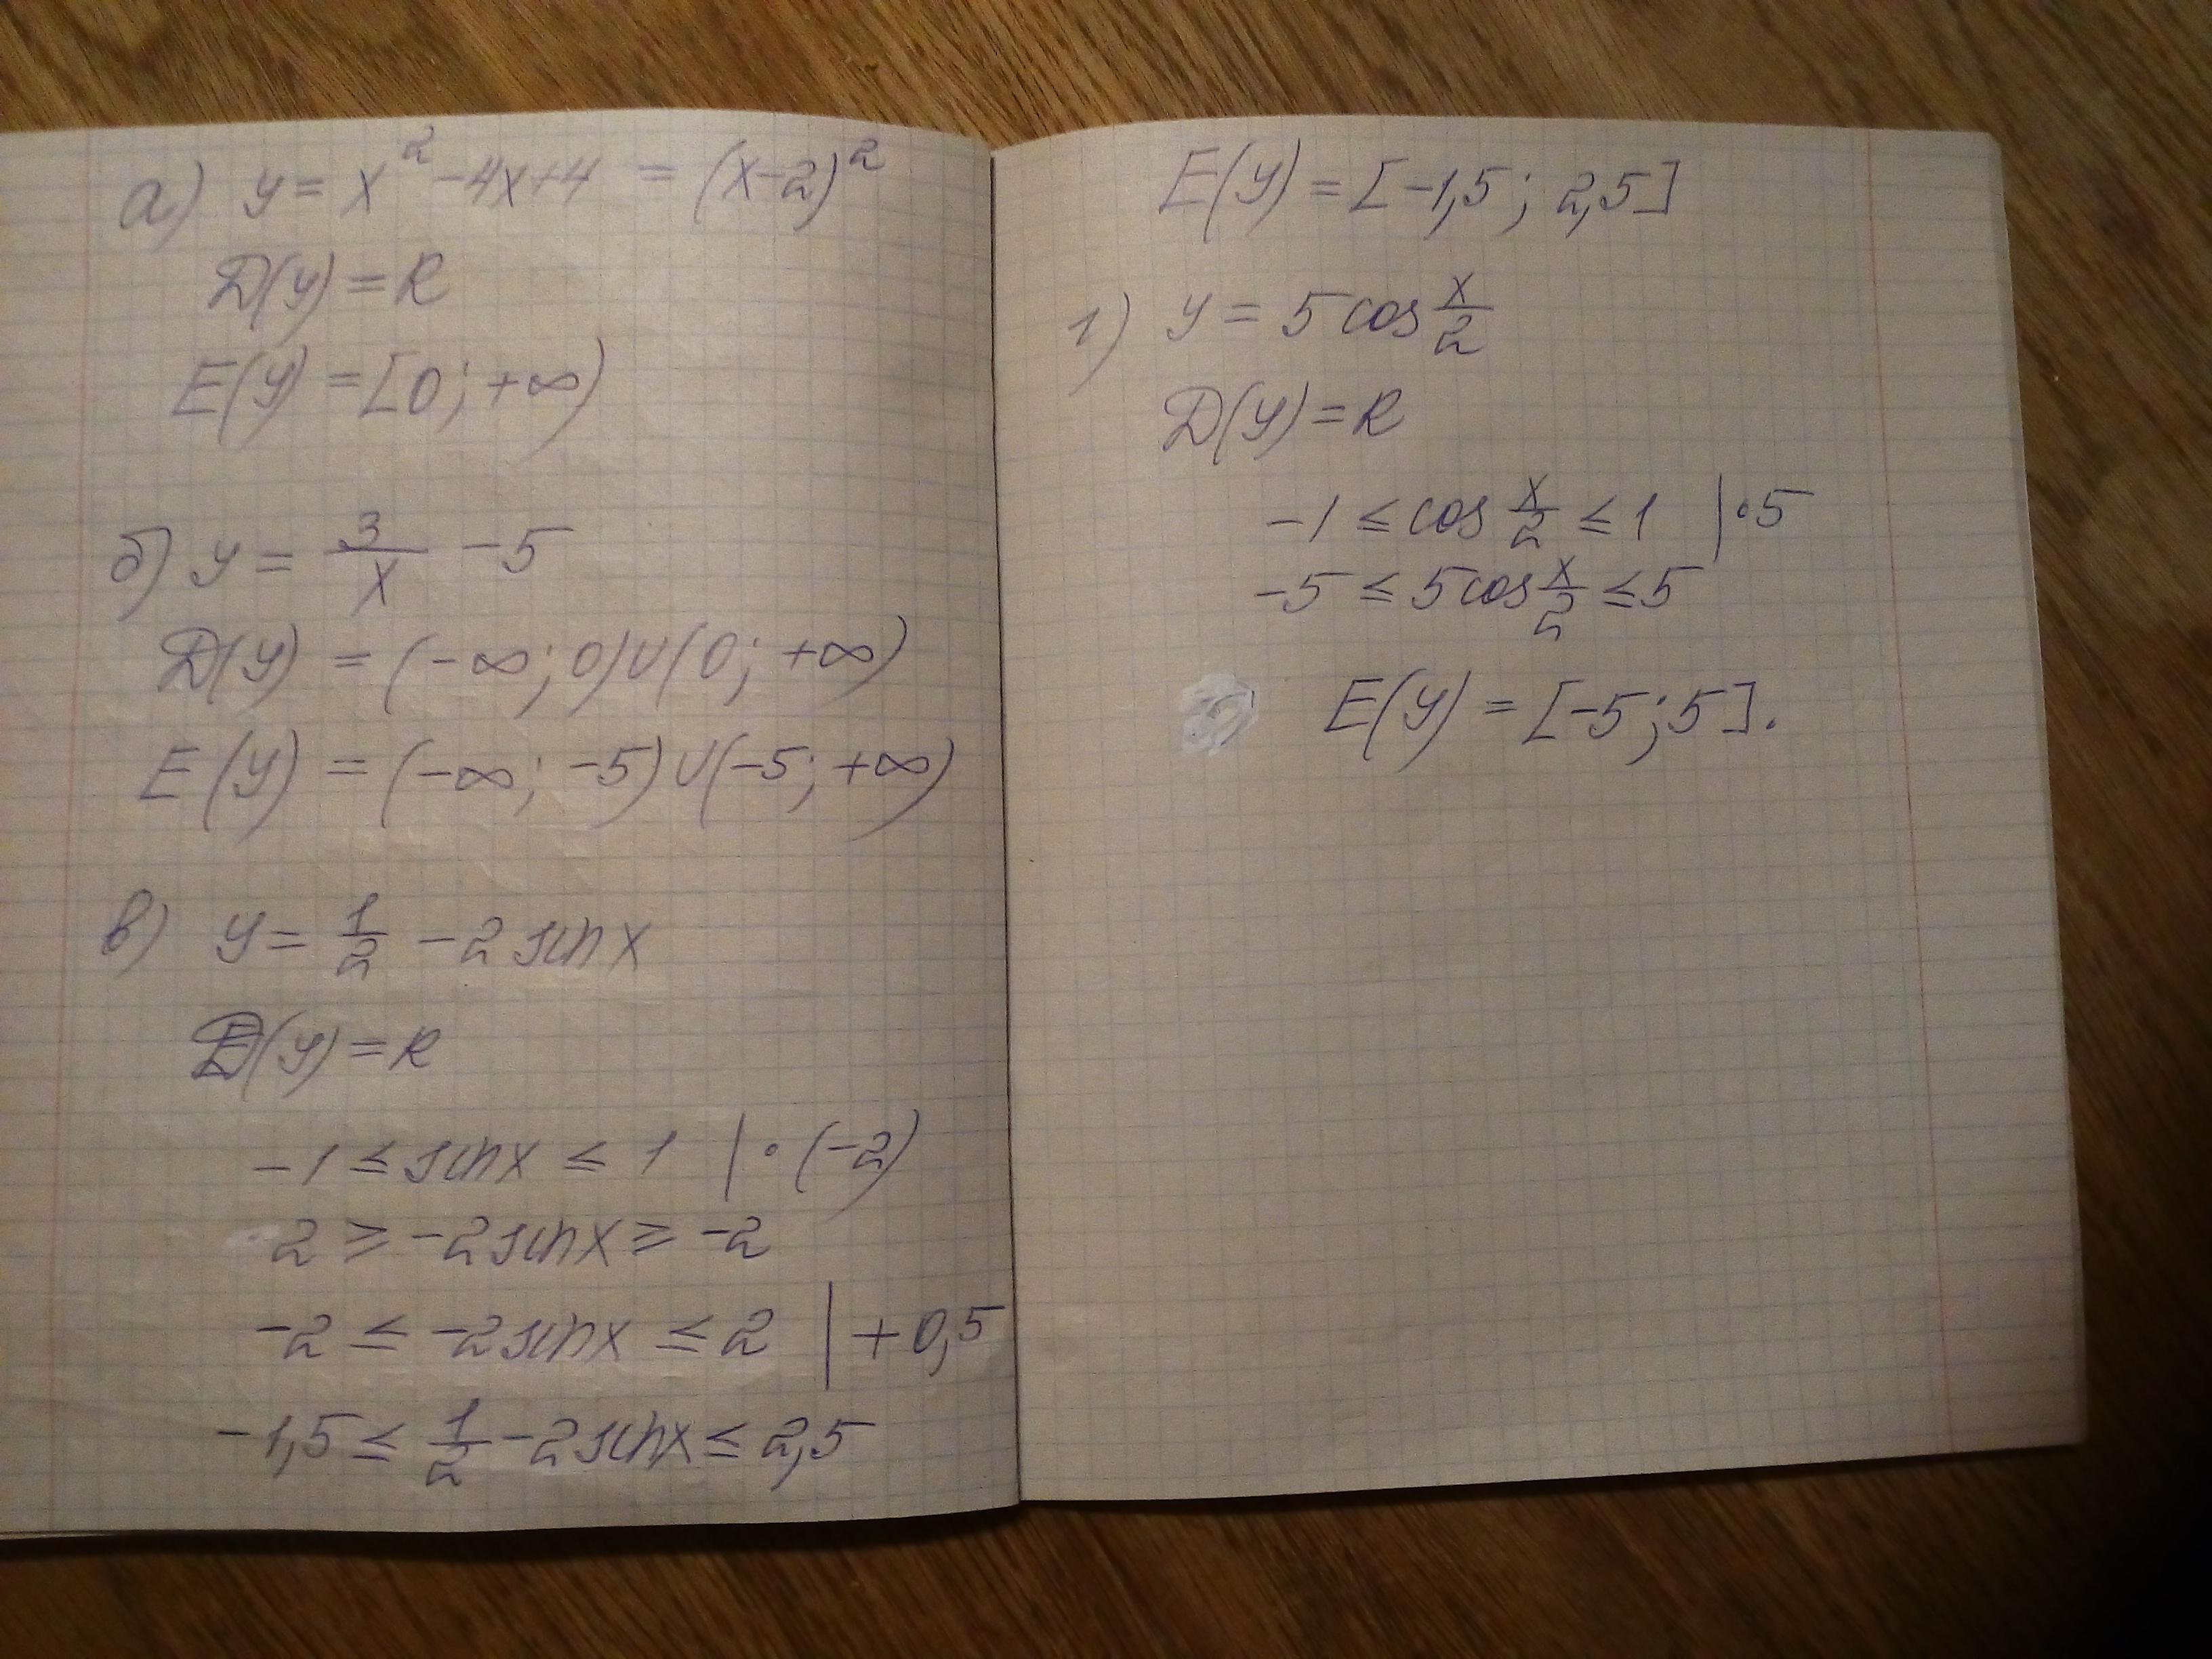 а) y = x² - 4x + 4 = (x-2)²
D(y) = R
E(y) = [0; +∞)
б) y = 3/x - 5
D(y) = (-∞; 0)∪(0; +∞)
E(y) = (-∞; -5)∪(-5; +∞)
в) y = 1/2 - 2 sin x
D(y) = R
-1 ≤ sin x ≤ 1 | · (-2)
2 ≥ -2 sin x ≥ -2
-2 ≤ -2 sin x ≤ 2 | + 0,5
-1,5 ≤ 1/2 - 2 sin x ≤ 2,5
E(y) = [-1,5; 2,5]
г) y = 5 cos x/2
D(y) = R
-1 ≤ cos x/2 ≤ 1 | · 5
-5 ≤ 5 cos x/2 ≤ 5
E(y) = [-5; 5].